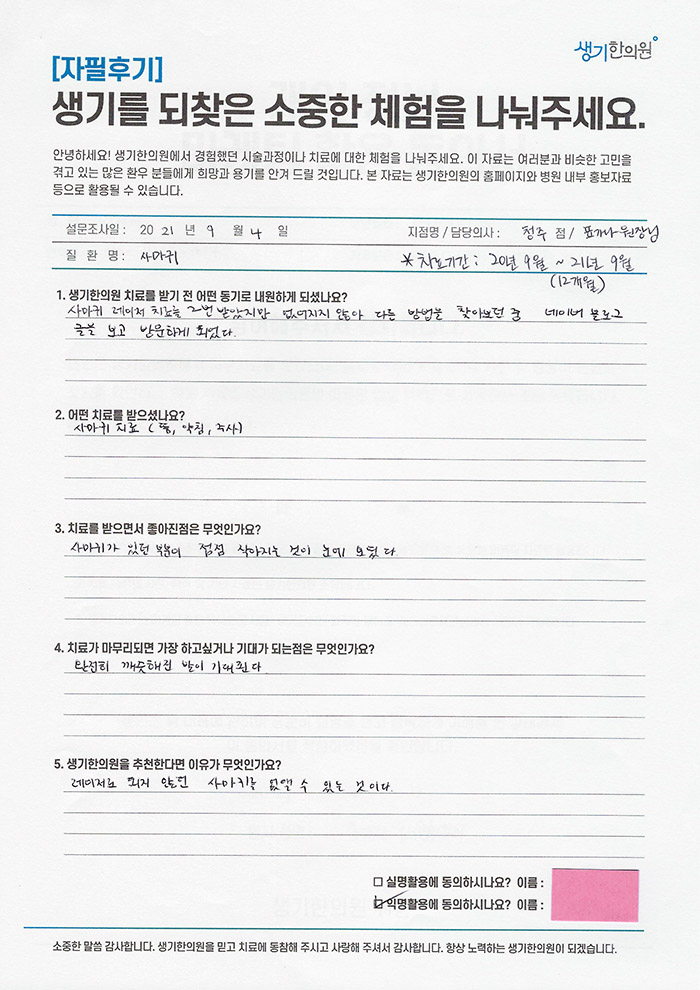 생기한의원
[자필후기]
생기를 되찾은 소중한 체험을 나눠주세요.
안녕하세요! 생기한의원에서 경험했던 시술과정이나 치료에 대한 체험을 나눠주세요. 이 자료는 여러분과 비슷한 고민을
겪고 있는 많은 환우 분들에게 희망과 용기를 안겨 드릴 것입니다. 본 자료는 생기한의원의 홈페이지와 병원 내부 홍보자료
등으로 활용될 수 있습니다.
설문조사일 : 20 21 년 9 월 4 일 지점명 / 담당의사 : 청주 점 / 표가나 원장님
질 환 명 : 사마귀 * 치료기간 : 20년 9월 ~ 21년 9월
(12개월)
1. 생기한의원 치료를 받기 전 어떤 동기로 내원하게 되셨나요?
사마귀 레이저 치료를 2번 받았지만 없어지지 않아 다른 방법을 찾아보던 중 네이버 블로그
글을 보고 방문하게 되었다.
2. 어떤 치료를 받으셨나요?
사마귀 치료 ( 뜸, 약침, 주사)
3. 치료를 받으면서 좋아진점은 무엇인가요?
사마귀가 있던 부분이 점점 작아지는 것이 눈에 보였다.
4. 치료가 마무리되면 가장 하고싶거나 기대가 되는점은 무엇인가요?
완전히 깨끗해진 발이 기대된다.
5. 생기한의원을 추천한다면 이유가 무엇인가요?
레이저로 되지 않던 사마귀를 없앨 수 있는 것이다.
□ 실명활용에 동의하시나요? 이름 :
☑ 익명활용에 동의하시나요? 이름 :
소중한 말씀 감사합니다. 생기한의원을 믿고 치료에 동참해 주시고 사랑해 주셔서 감사합니다. 항상 노력하는 생기한의원이 되겠습니다.